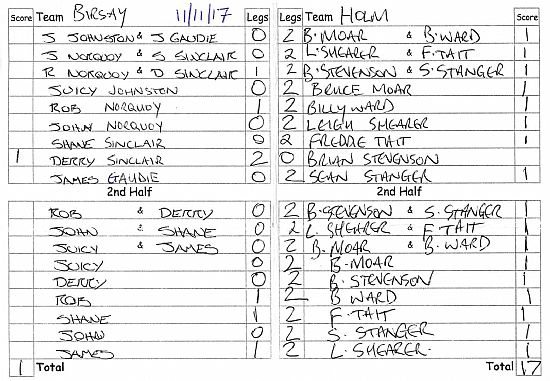 Score Team BIRSAY 11/11/17 Legs Legs Team HOLM Score
J JOHNSTON & J GAUDIE 0 2 B. MOAR & B. WARD 1
J NORQUOY & S SINCLAIR 0 2 L. SHEARER & F. TAIT 1
R NORQUOY & D SINCLAIR 1 2 B. STEVENSON & S. STANGER 1
JUICY JOHNSTON 0 2 BRUCE MOAR 1
ROB NORQUOY 1 2 BILLY WARD 1
JOHN NORQUOY 0 2 LEIGH SHEARER 1
SHANE SINCLAIR 0 2 FREDDE TAIT 1
1 DERRY SINCLAIR 2 0 BRIAN STEVENSON
JAMES GAUDIE 0 2 SEAN STANGER 1
2nd Half 2nd Half
ROB & DERRY 0 2 B. STEVENSON & S. STANGER 1
JOHN & SHANE 0 2 L. SHEARER & F. TAIT 1
JUICY & JAMES 0 2 B. MOAR & B. WARD 1
JUICY 0 2 B. MOAR 1
DERRY 0 2 B. STEVENSON 1
ROB 1 2 B WARD 1
SHANE 1 2 F. TAIT 1
JOHN 0 2 S. STANGER 1
JAMES 1 2 L. SHEARER. 1
1 Total Total 17